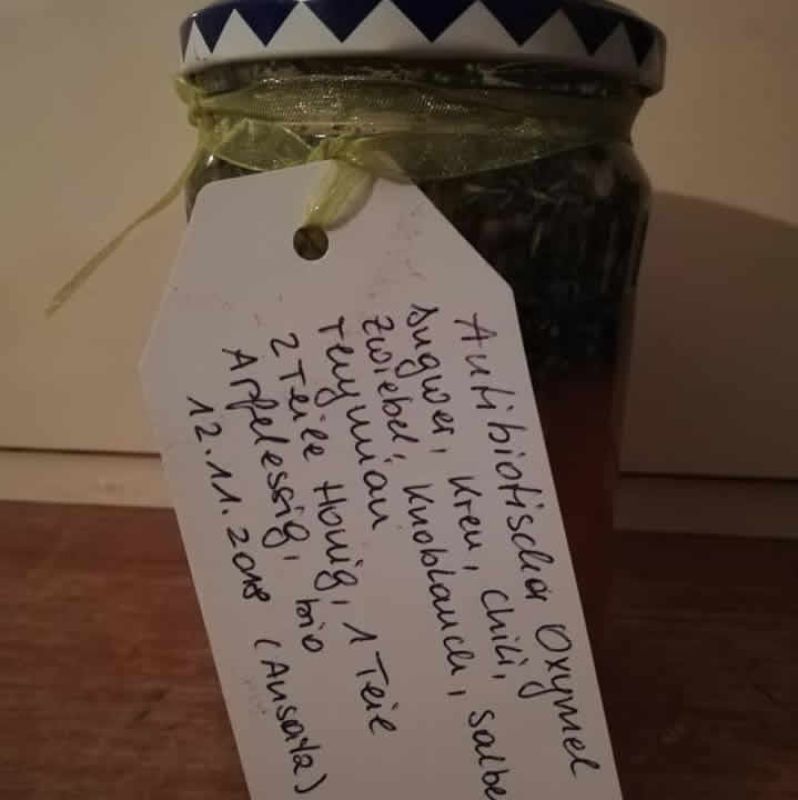 Antibiotischer Oxymel
Ingwer, Kren, Chili,
Zwiebel, Knoblauch, Salbei
Thymian
2 Teile Honig, 1 Teil
Apfelessig, bio
12.11.2018 (Ansatz)